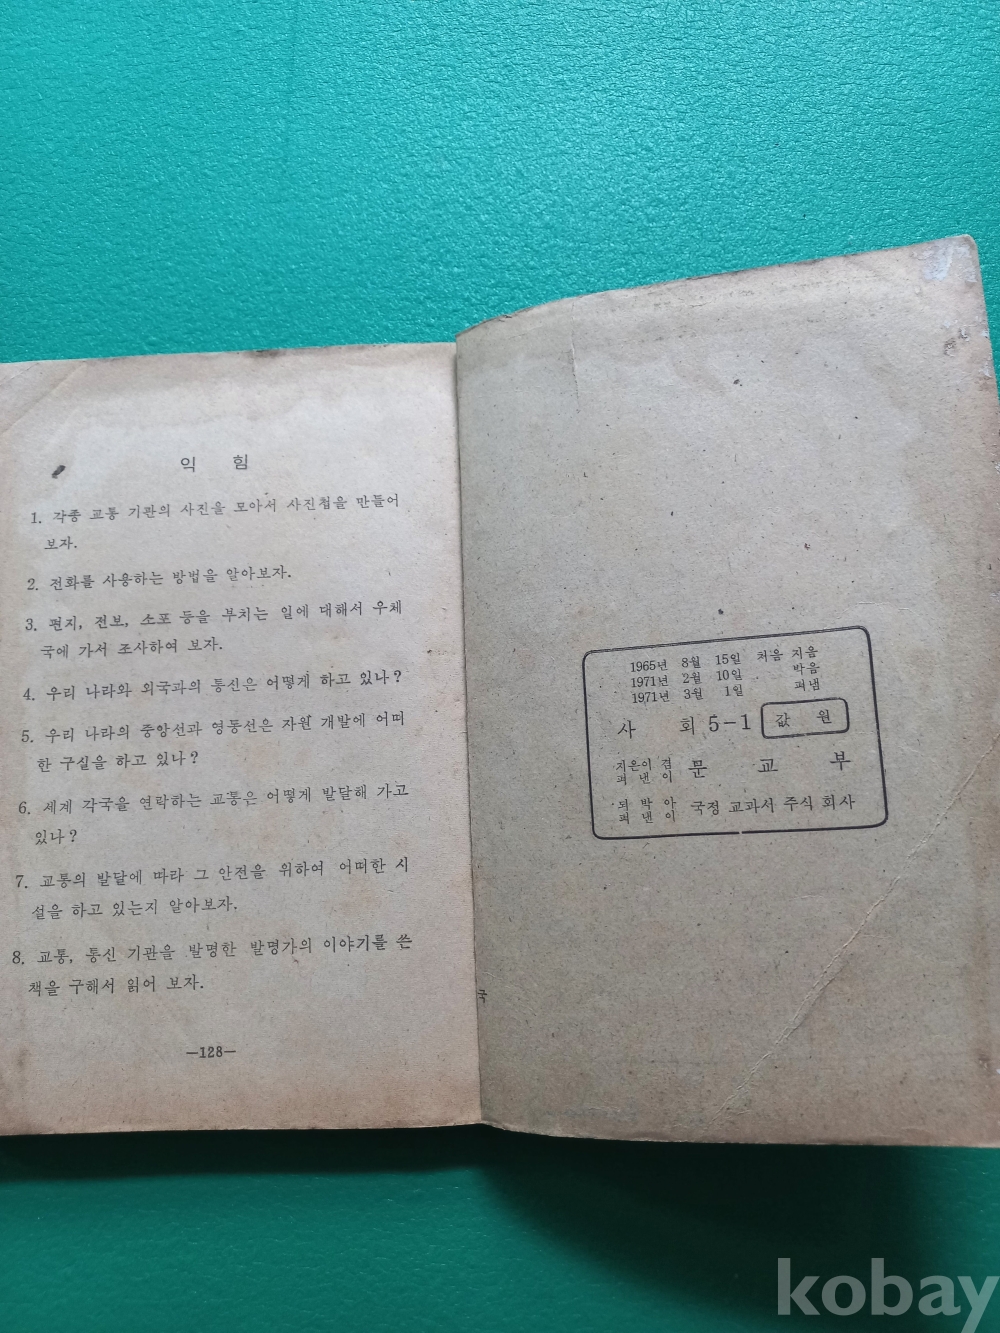 익 힘
1. 각종 교통 기관의 사진을 모아서 사진첩을 만들어
보자.
2. 전화를 사용하는 방법을 알아보자.
3. 편지, 전보, 소포 등을 부치는 일에 대해서 우체
국에 가서 조사하여 보자.
4. 우리 나라와 외국과의 통신은 어떻게 하고 있나?
5. 우리 나라의 중앙선과 영동선은 자원 개발에 어떠
한 구실을 하고 있나?
6. 세계 각국을 연락하는 교통은 어떻게 발달해 가고
있나?
7. 교통의 발달에 따라 그 안전을 위하여 어떠한 시
설을 하고 있는지 알아보자.
8. 교통, 통신 기관을 발명한 발명가의 이야기를 쓴
책을 구해서 읽어 보자.
—128—
국
1965년 8월 15일 처음 지음
1971년 2월 10일 박음
1971년 3월 1일 펴냄
사 회 5-1 값 원
지은이 겸
펴 낸 이 문 교 부
되 박 아
펴 낸 이 국정 교과서 주식 회사
kobay